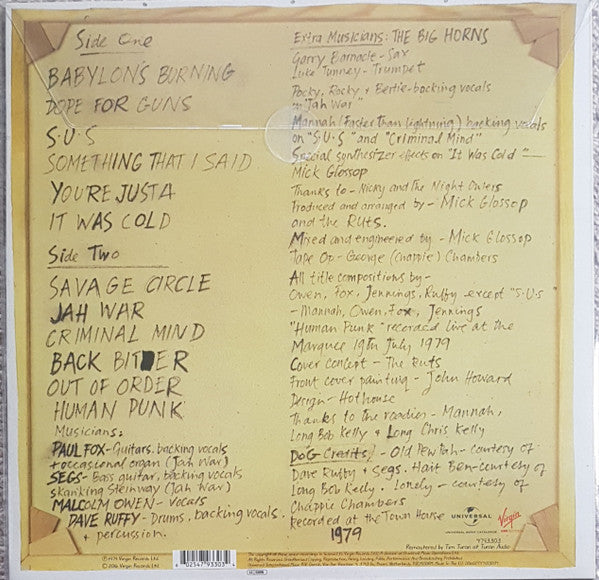 Side One
BABYLON'S BURNING
DOPE FOR GUNS
S·U·S
SOMETHING THAT I SAID
YOU'RE JUST A
IT WAS COLD
Side Two
SAVAGE CIRCLE
JAH WAR
CRIMINAL MIND
BACK BITER
OUT OF ORDER
HUMAN PUNK
Musicians:
PAUL FOX - Guitars, backing vocals
+ occasional organ (Jah War)
SEGS - Bass guitar, backing vocals
skanking Steinway (Jah War)
MALCOLM OWEN - Vocals
DAVE RUFFY - Drums, backing vocals
+ percussion.
Extra Musicians: THE BIG HORNS
Garry Barnacle - Sax
Luke Tunney - Trumpet
Pocky, Rocky + Bertie - backing vocals
on "Jah War"
Mannah (Faster than lightning) backing vocals
on "S·U·S" and "Criminal Mind"
Special synthesizer effects on "It Was Cold" -
Mick Glossop
Thanks to - Nicky and The Night Owers
Produced and arranged by - Mick Glossop
and the Ruts.
Mixed and engineered by - Mick Glossop
Tape Op - George (Chappie) Chambers
All title compositions by -
Owen, Fox, Jennings, Ruffy except "S·U·S
- Mannah, Owen, Fox, Jennings
"Human Punk" recorded live at the
Marquee 19th July 1979
Cover concept - The Ruts
Front cover painting - John Howard
Design - Hothouse
Thanks to the roadies - Mannah,
Long Bob Kelly & Long Chris Kelly
DOG Credits, - Old Pew Pah - courtesy of
Dave Ruffy + Segs. Hait Ben - courtesy of
Long Bob Kelly. Lonely - courtesy of
Chappie Chambers
Recorded at the Town House
1979
UNIVERSAL
Virgin
4793303
Remastered by Tim Turan at Turan Audio
℗ 1979 Virgin Records Ltd.
© 2016 Virgin Records Ltd.
6 02547 93303 4